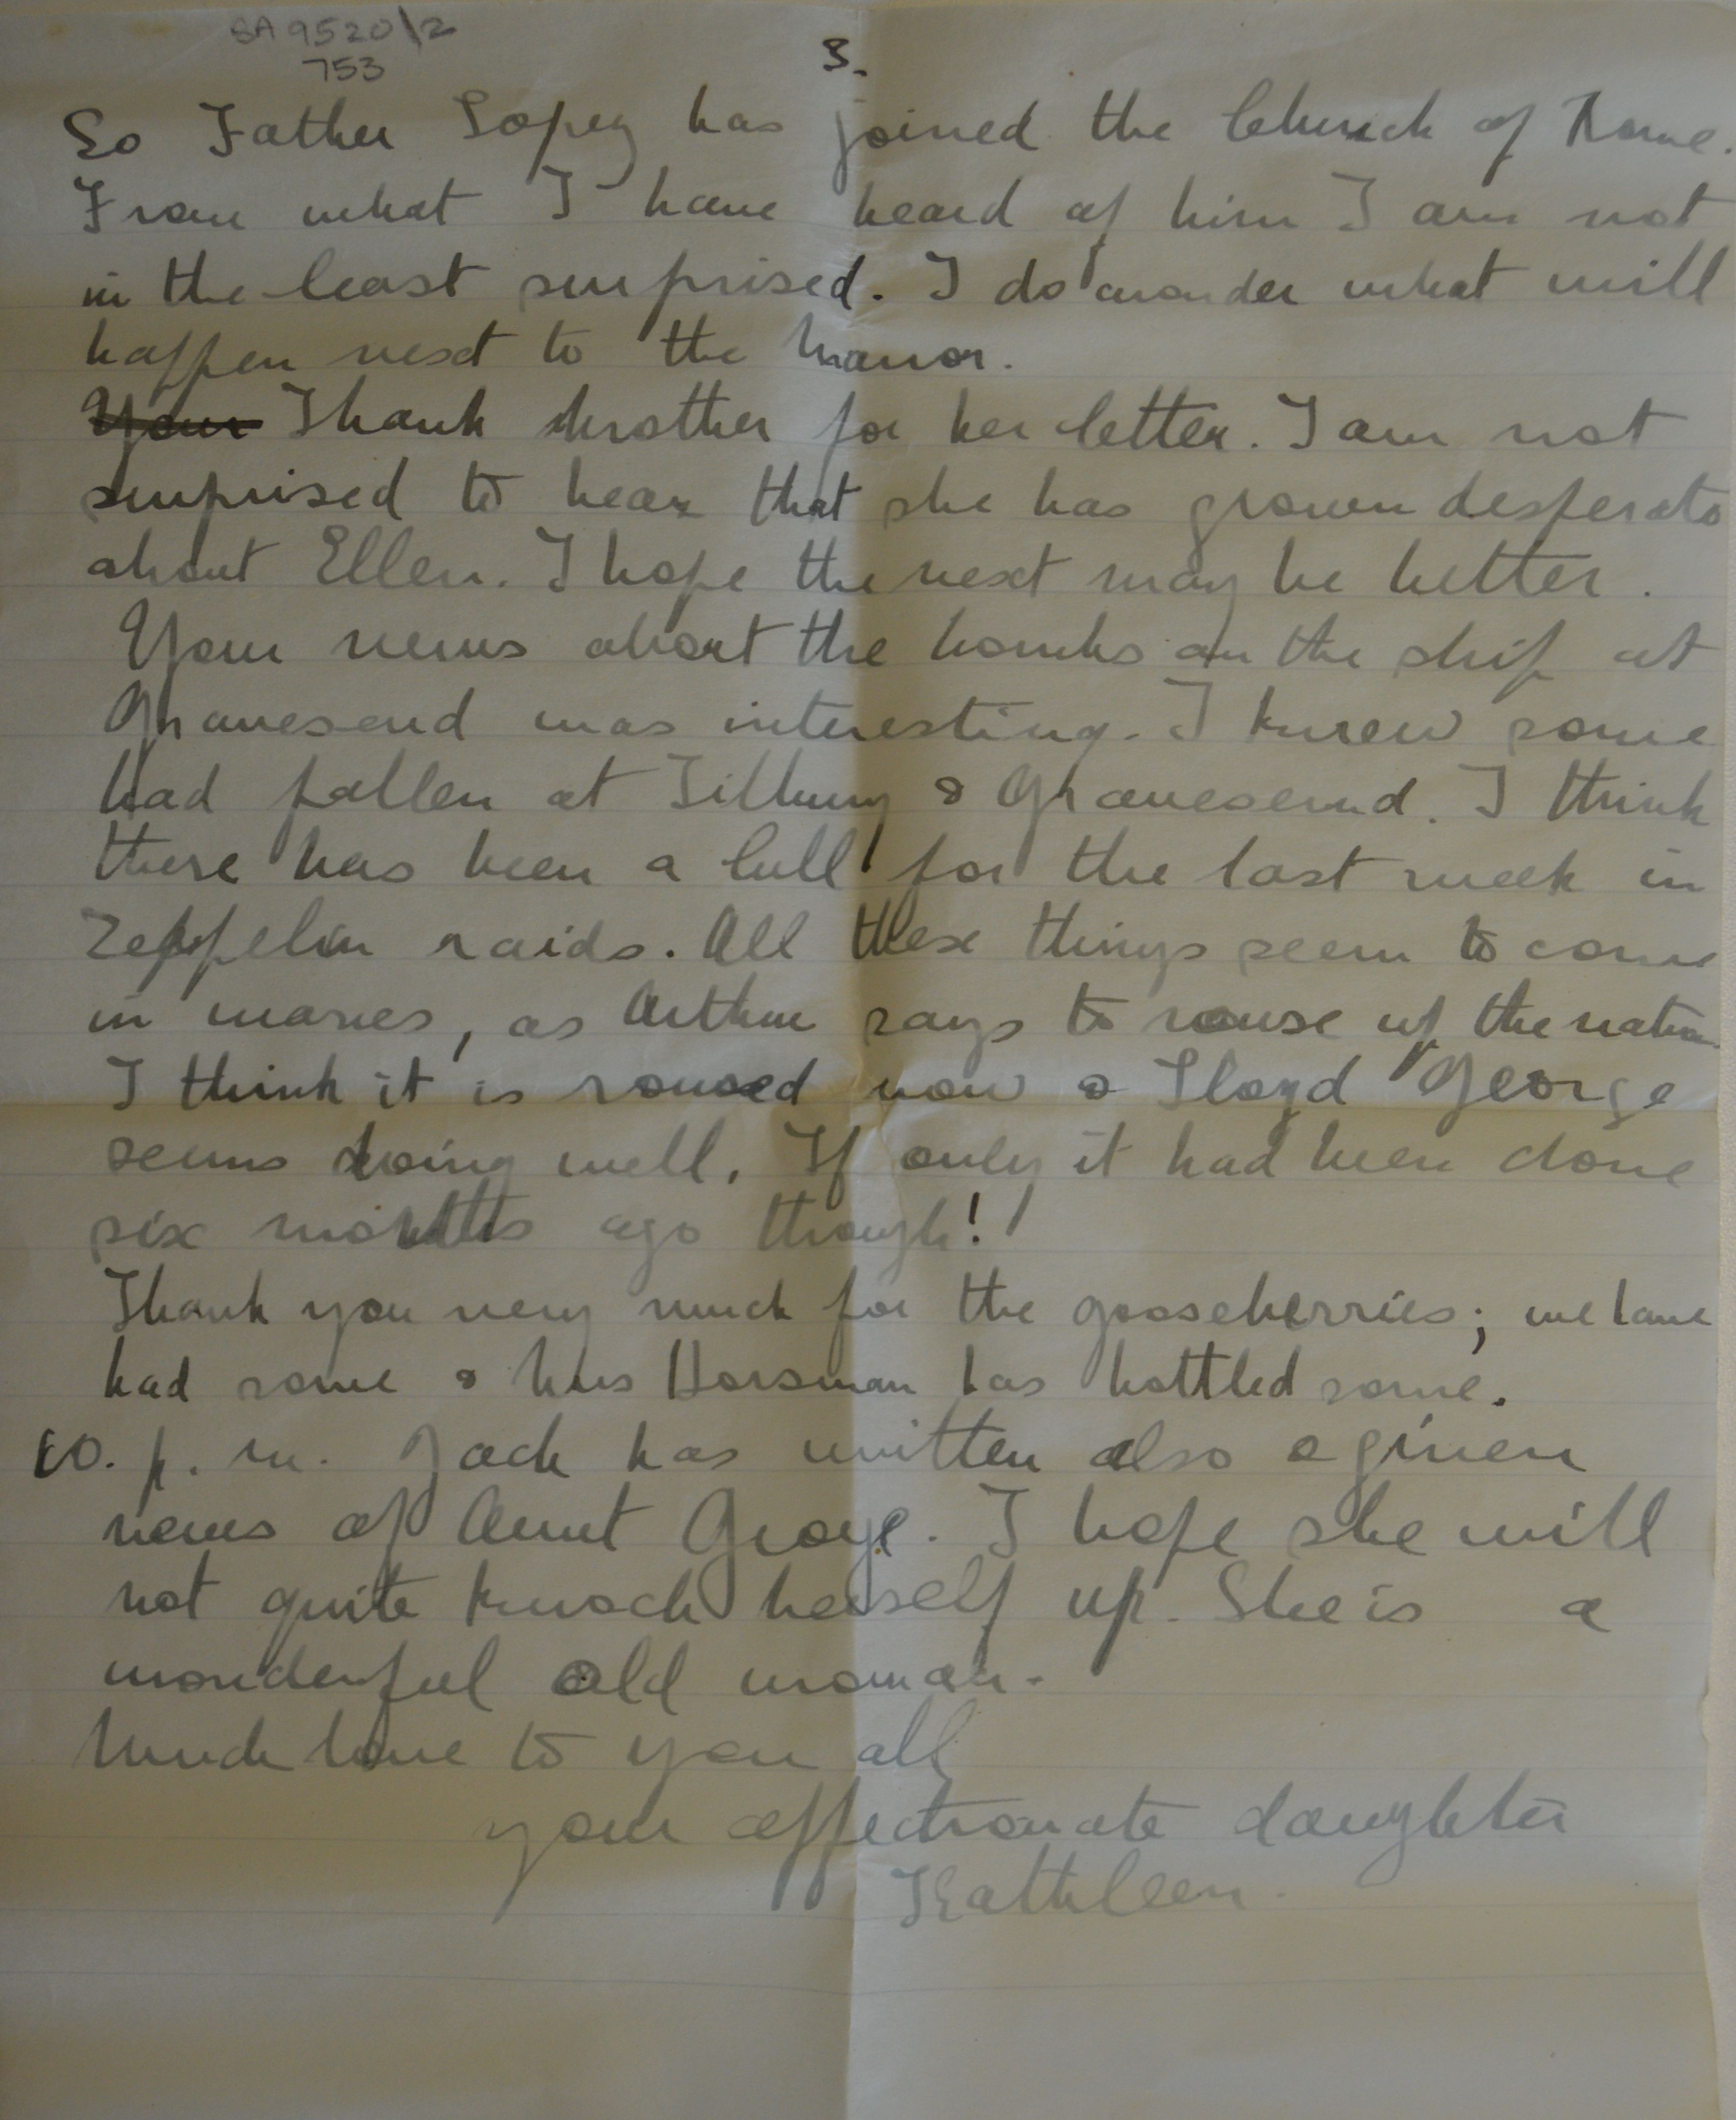 BA 9520/2
753
3.
So Father Lopez has joined the Church of Rome.
From what I have heard of him I am not
in the least surprised. I do wonder what will
happen next to the Manor.
Your Thank Mother for her letter. I am not
surprised to hear that she has grown desperate
about Ellen. I hope the next may be better.
Your news about the bombs on the ship at
Gravesend was interesting. I knew some
had fallen at Tilbury & Gravesend. I think
there has been a lull for the last week in
Zeppelin raids. All these things seem to come
in waves, as Arthur says to rouse up the nation
I think it is roused now & Lloyd George
seems doing well. If only it had been done
six months ago though!
Thank you very much for the gooseberries; we have
had some & Mrs Horsman has bottled some.
10. p. m. Jack has written also & given
news of Aunt. I hope she will
not quite knock herself up. She is a
wonderful old woman.
Much love to you all
your affectionate daughter
Kathleen.